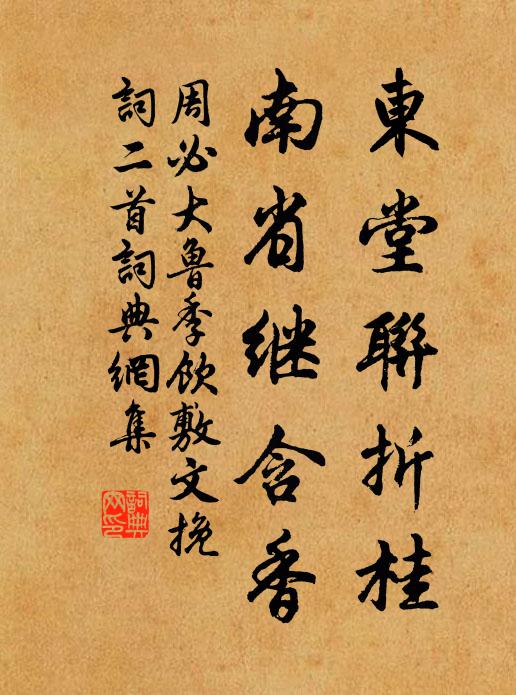 東堂聯折桂
南省继含香
周必大魯季欽敷文挽
詞二首詞典網集
詞典網印